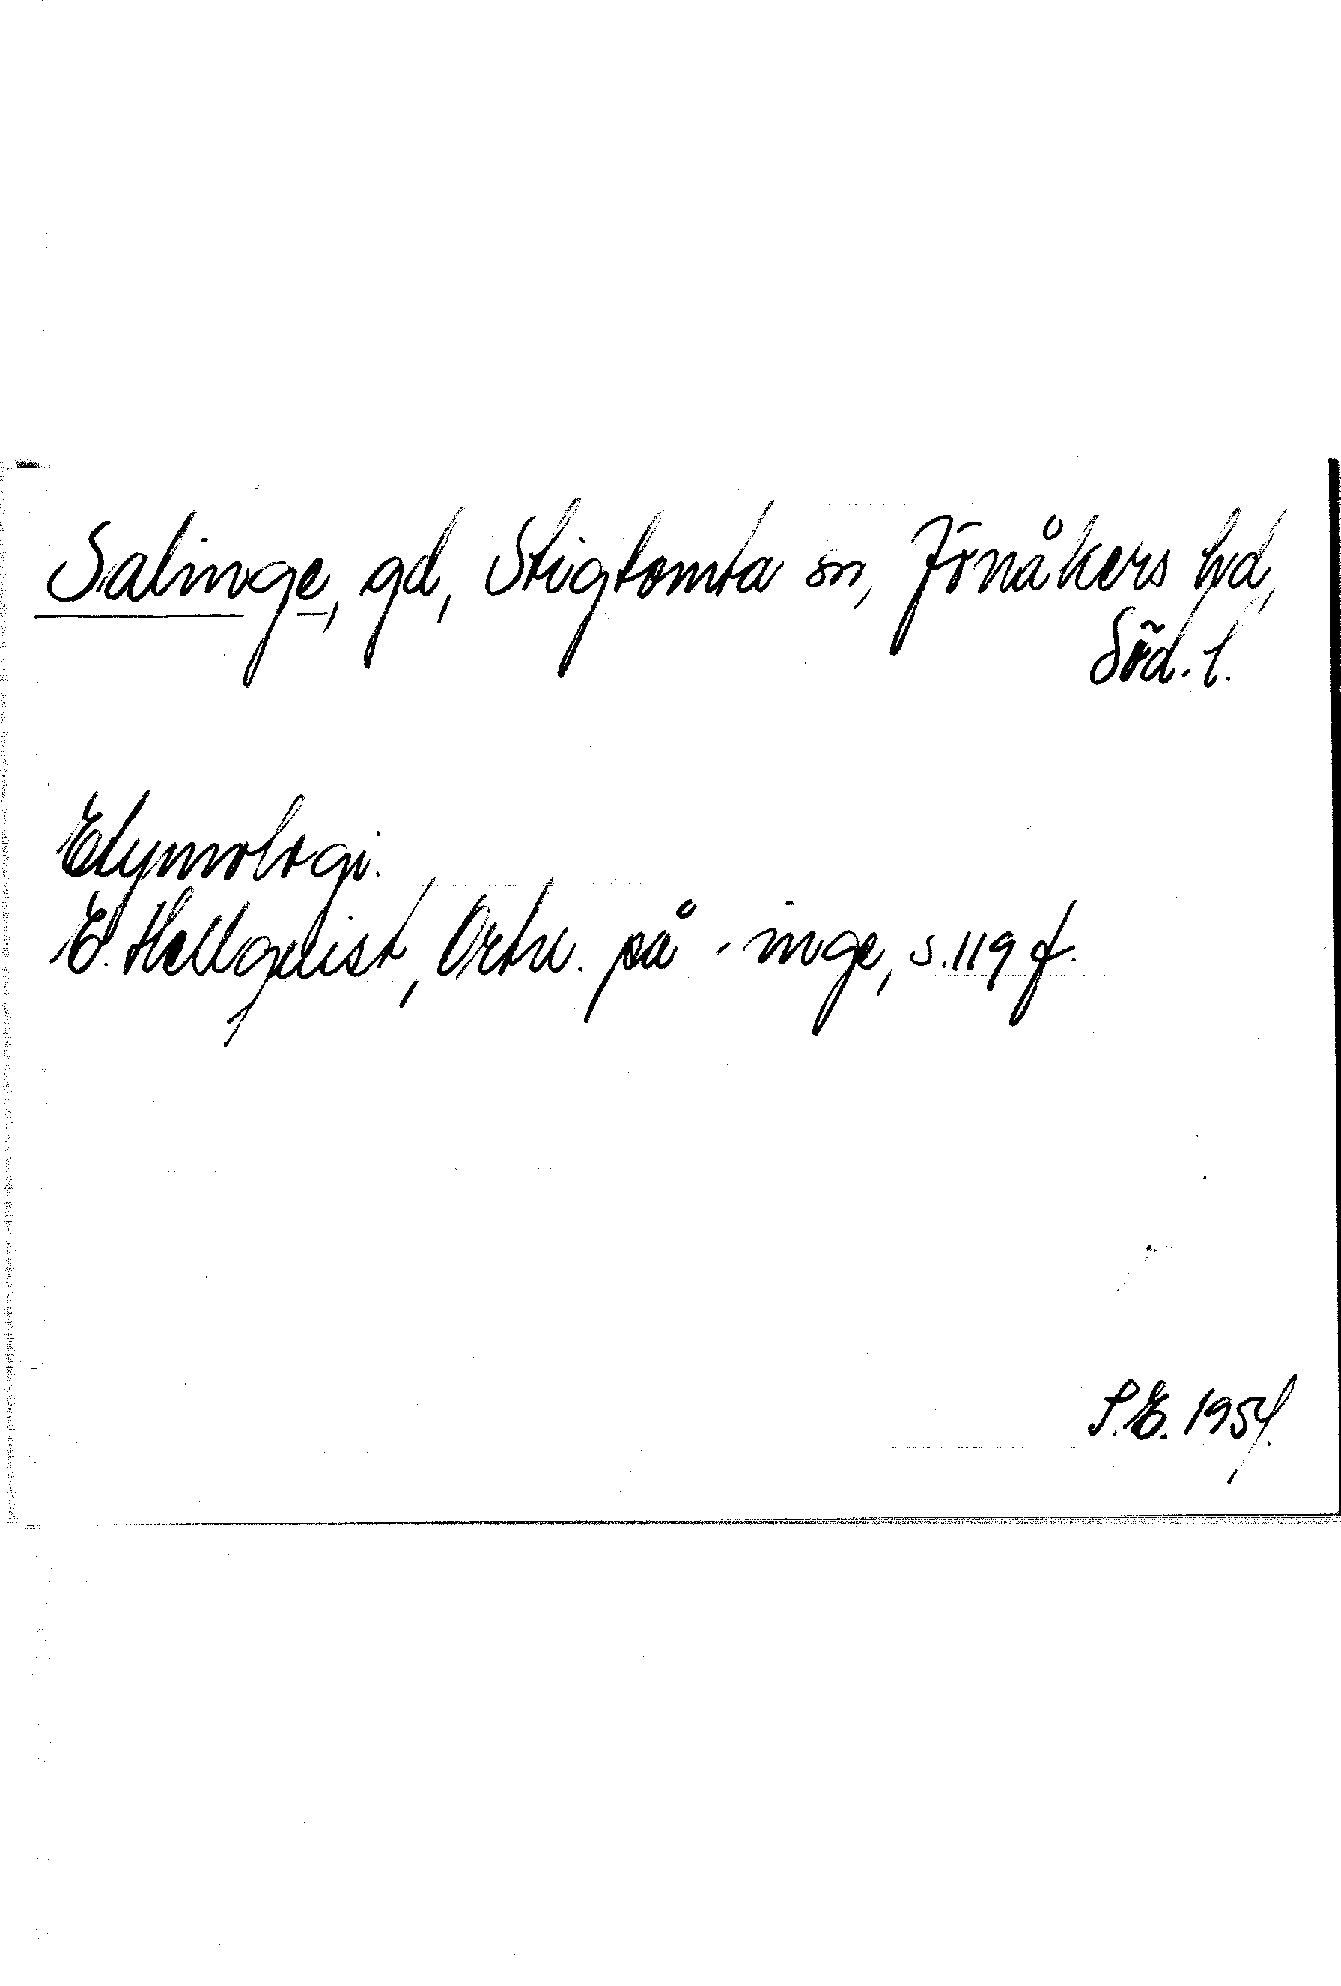 Salinge, gd, Stigtomta sn, Jönåkers hd,
Söd. l.
Etymologi.
E. Hellquist, Ortn. på -inge, s. 119 f.
S.E. 1954.